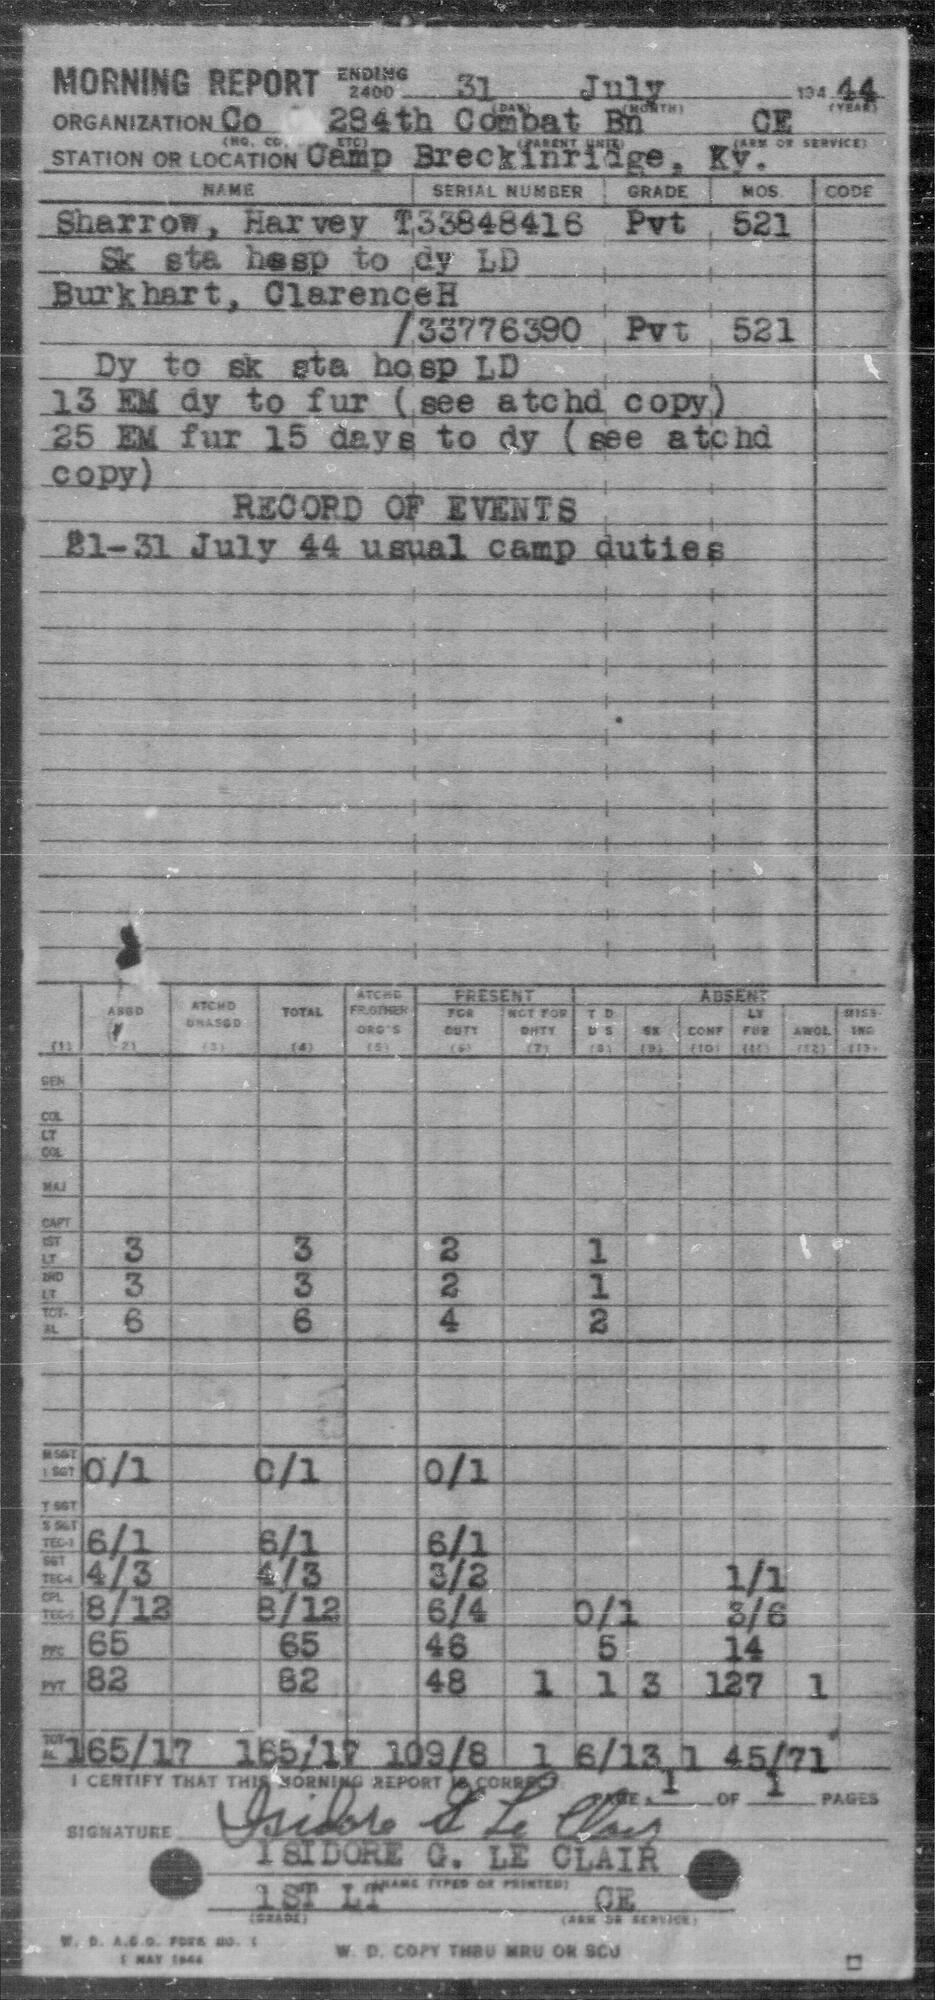 MORNING REPORT ENDING 2400 31 July 1944
(DAY) (MONTH) (YEAR)
ORGANIZATION Co 284th Combat Bn CE
(NO. CO. ETC) (PARENT UNIT) (ARM OR SERVICE)
STATION OR LOCATION Camp Breckinridge, Ky.
NAME SERIAL NUMBER GRADE MOS. CODE
Sharrow, Harvey T 33848416 Pvt 521
Sk sta hosp to dy LD
Burkhart, Clarence H
/33776390 Pvt 521
Dy to sk sta hosp LD
13 EM dy to fur (see atchd copy)
25 EM fur 15 days to dy (see atchd
copy)
RECORD OF EVENTS
21-31 July 44 usual camp duties
PRESENT ABSENT
(1) ASGD (2) ATCHD UNASGD (3) TOTAL (4) ATCHD FR.OTHER ORG'S (5) FOR DUTY (6) NOT FOR DUTY (7) T D D S (8) SK (9) CONF (10) LV FUR (11) AWOL (12) MISSING (13)
GEN
COL
LT COL
MAJ
CAPT
1ST LT 3 3 2 1
2ND LT 3 3 2 1
TOTAL 6 6 4 2
M SGT 1 SGT 0/1 0/1 0/1
T SGT
S SGT TEC-3 6/1 6/1 6/1
SGT TEC-4 4/3 4/3 3/2 1/1
CPL TEC-5 8/12 8/12 6/4 0/1 3/6
PFC 65 65 46 5 14
PVT 82 82 48 1 1 3 127 1
TOTAL 165/17 165/17 109/8 1 6/13 1 45/71
I CERTIFY THAT THIS MORNING REPORT IS CORRECT.
PAGE 1 OF 1 PAGES
SIGNATURE Isidore G Le Clair
ISIDORE G. LE CLAIR
(NAME TYPED OR PRINTED)
1ST LT CE
(GRADE) (ARM OR SERVICE)
W. D. A.G.O. FORM NO. 1
1 MAY 1944
W. D. COPY THRU MRU OR SCU